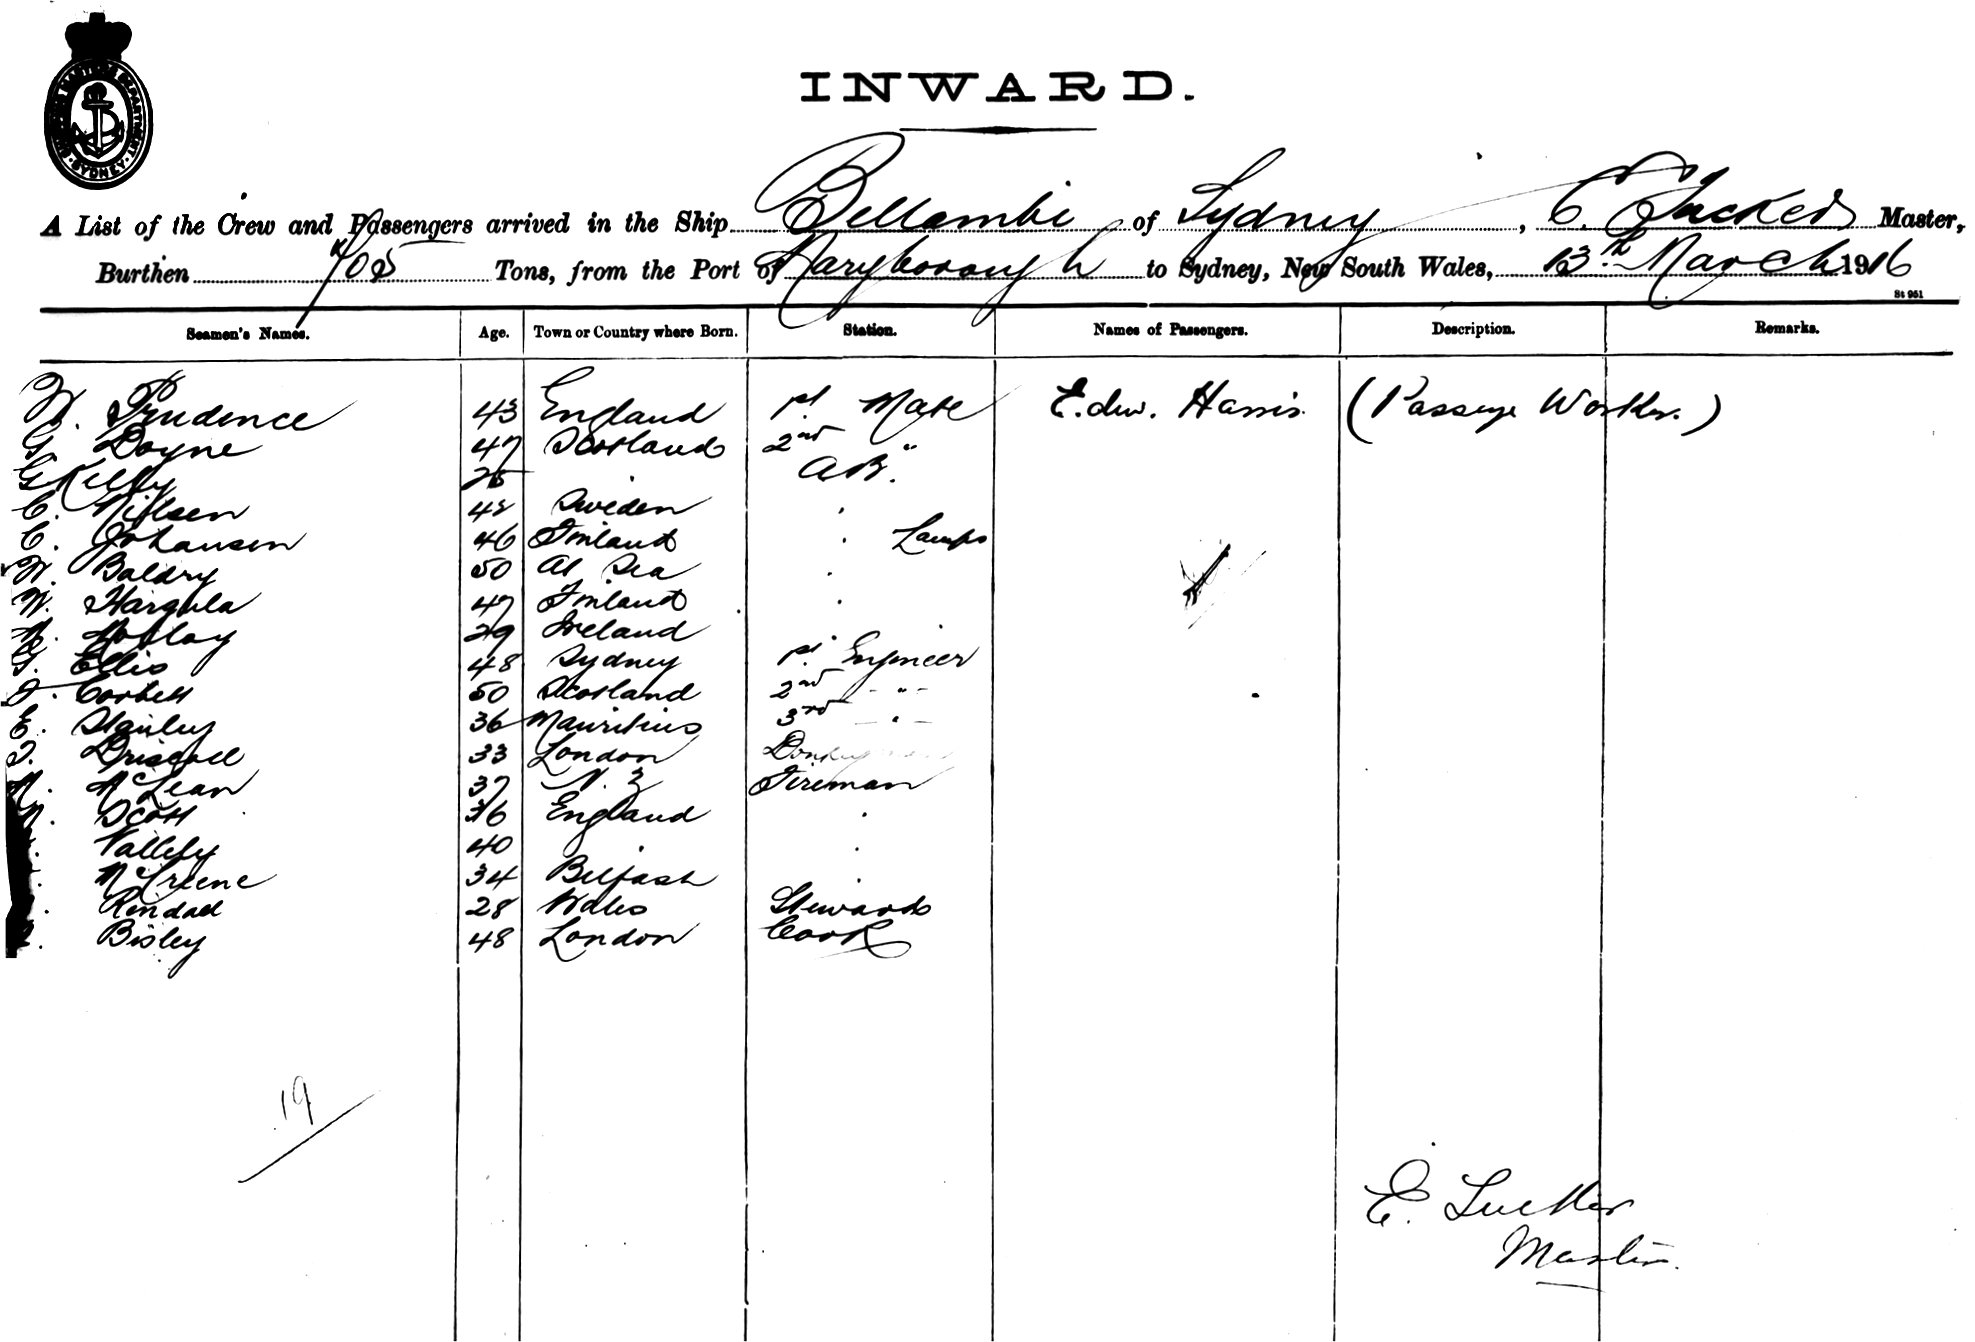 SHIPPING MASTERS DEPARTMENT · SYDNEY ·
INWARD.
A List of the Crew and Passengers arrived in the Ship Bellambi of Sydney, Master,
Burthen 705 Tons, from the Port of Maryborough to Sydney, New South Wales, 13th March 1916
St 951
Seamen's Names. Age. Town or Country where Born. Station. Names of Passengers. Description. Remarks.
W. Prudence 43 England 1st Mate Edw. Harris (Passage Worker.)
G. Doyne 47 Scotland 2nd "
G Kelly 25 . AB.
C. Nilsen 42 Sweden .
C. Johansen 46 Finland . Lamps
W. Baldry 50 At Sea .
W. Hargula 47 Finland .
29 Ireland
G. Ellis 48 Sydney 1st Engineer
J. Corbett 50 Scotland 2nd - " -
E. Stanley 36 Mauritius 3rd - " -
Driscoll 33 London Donkeyman
McLean 37 N. Z Fireman
Scott 36 England .
Vallely 40 . .
McGreene 34 Belfast .
Rendall 28 Wales Steward
Bisley 48 London Cook
19
E. Tucker
Master.